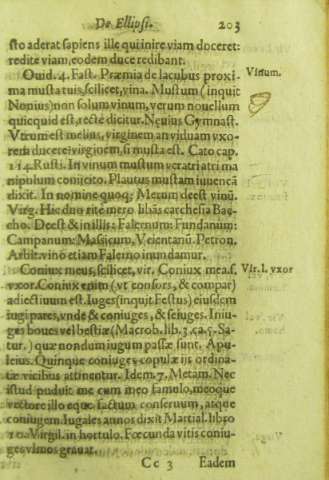 De Ellipsi. 203
sto aderat sapiens ille qui inire viam doceret:
redite viam, eodem duce redibant.
Ouid. 4. Fast. Præmia de lacubus proxi- Vinum.
ma musta tuis, scilicet, vina. Mustum (inquit
Nonius) non solum vinum, verum nouellum
quicquid est, recte dicitur. Neuius Gymnast.
Vtrum est melius, virginem an viduam vxo-
rem ducere? virginem, si musta est. Cato cap.
114. Rusti. In vinum mustum veratri atri ma
nipulum coniicito. Plautus mustam iuuencã
dixit. In nomine quoq; Merum deest vinũ.
Virg. Hic duo rite mero libãs carchesia Bac-
cho. Deest & in illis: Falernum: Fundanum:
Campanum: Massicum, Veientanũ. Petron.
Arbit. vino etiam Falerno inundamur.
Coniux meus, scilicet, vir. Coniux mea, s. Vir. l. vxor
vxor. Coniux enim (vt consors, & compar)
adiectiuum est. Iuges (inquit Festus) eiusdem
iugi pares, vnde & coniuges, & seiuges. Iniu-
ges boues vel bestiæ (Macrob. lib. 3. ca. 5. Sa-
tur.) quæ nondum iugum passæ sunt. Apu-
leius. Quinque coniuges copulæ iis ordina-
tæ vicibus attinentur. Idem. 7. Metam. Nec
istud puduit me cum meo famulo, meoque
vectore illo equo factum conseruum, atque
coniugem. Iugales annos dixit Martial. libro
10. Virgil. in hortulo. Fœcunda vitis coniu-
ges vlmos grauat.
Cc 3 Eadem